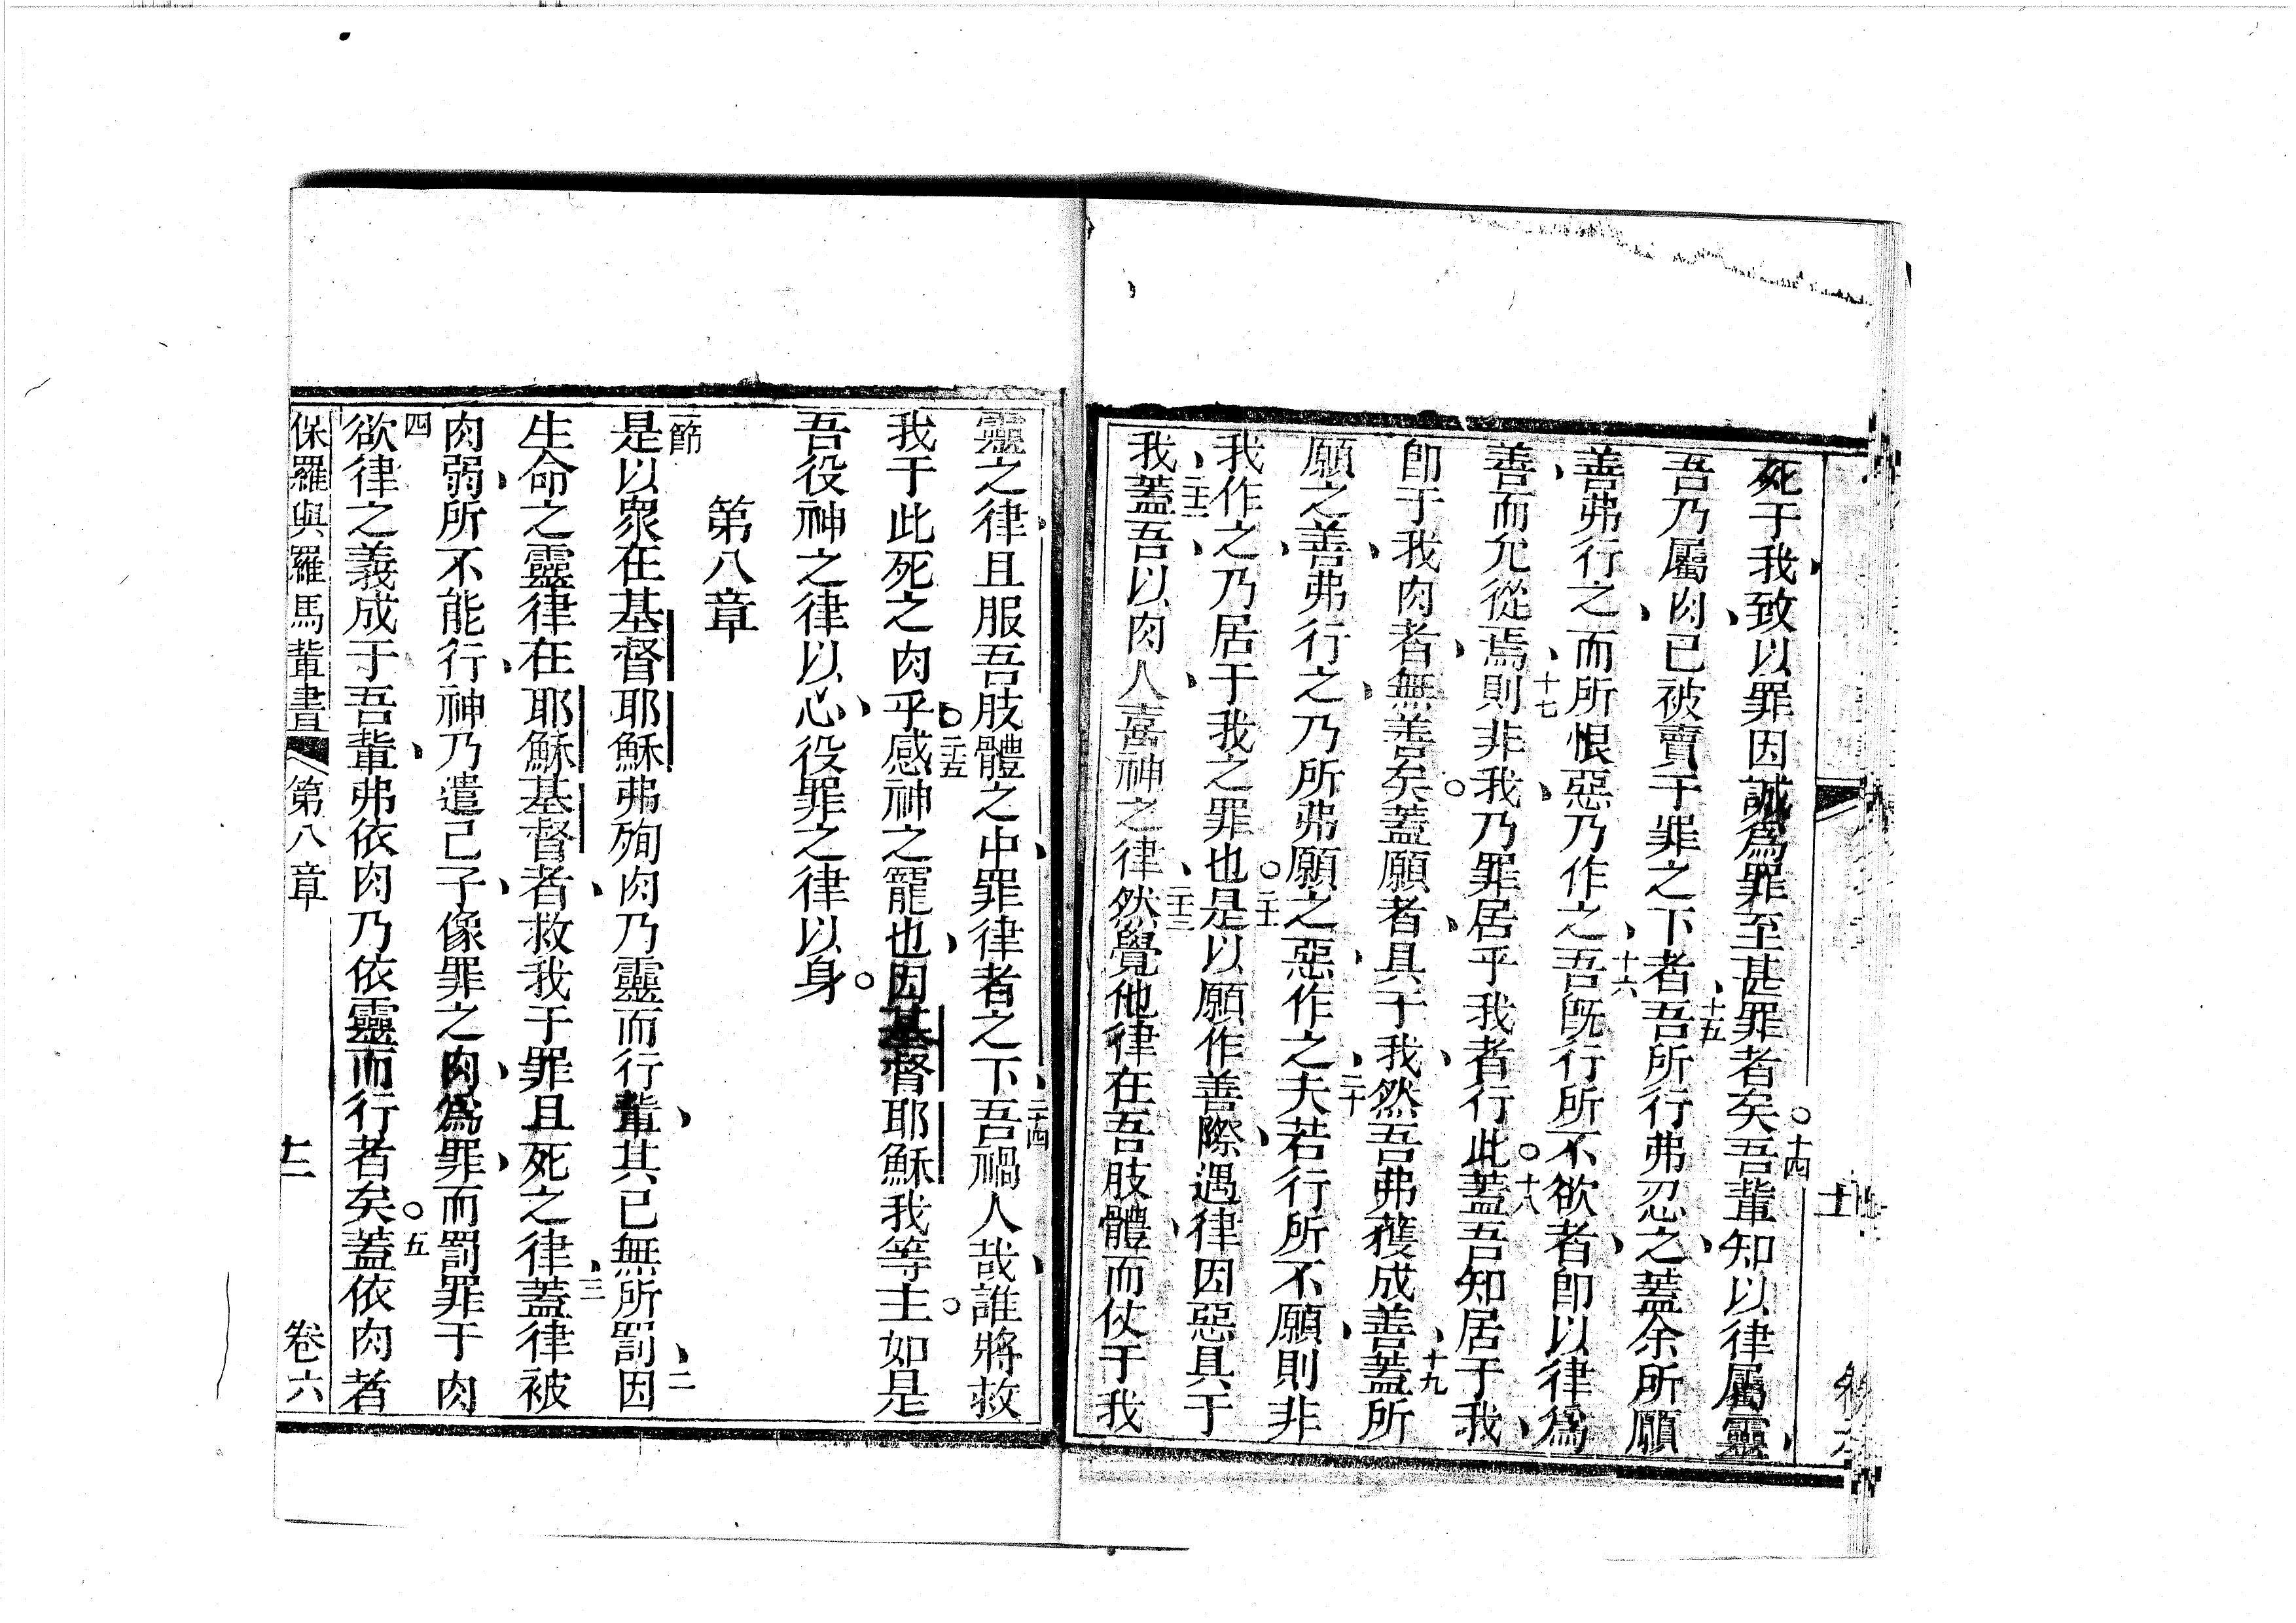 死于我、致以罪因誠爲罪至甚罪者矣。十四吾輩知以律屬靈、
吾乃屬肉、已被賣于罪之下者、十五吾所行弗忍之、蓋余所願
善弗行之、而所恨惡乃作之、十六吾旣行所不欲者、卽以律爲
善、而允從焉、十七則非我、乃罪居乎我者行此。十八蓋吾知居于我、
卽于我肉者、無善矣。蓋願者、具于我、然吾弗獲成善、十九蓋所
願之善、弗行之、乃所弗願之惡、作之、二十夫若行所不願、則非
我作之、乃居于我之罪也。二十一是以願作善際、遇律因惡具于
我、二十二蓋吾、以肉人、喜神之律、二十三然覺他律在吾肢體、而仗于我
靈之律、且服吾肢體之中、罪律者之下、二十四吾禍人哉、誰將救
我于此死之肉乎。二十五感神之寵也、因基督耶穌我等主。如是
吾役神之律以心、役罪之律以身。
第八章
一節是以衆在基督耶穌弗殉肉乃靈而行輩、其已無所罰、二因
生命之靈律在耶穌基督者、救我于罪且死之律、三蓋律被
肉弱、所不能行、神乃遣己子、像罪之肉、爲罪、而罰罪于肉
四欲律之義成于吾輩、弗依肉乃依靈而行者矣。五蓋依肉者
保羅與羅馬輩書 第八章 十二 卷六